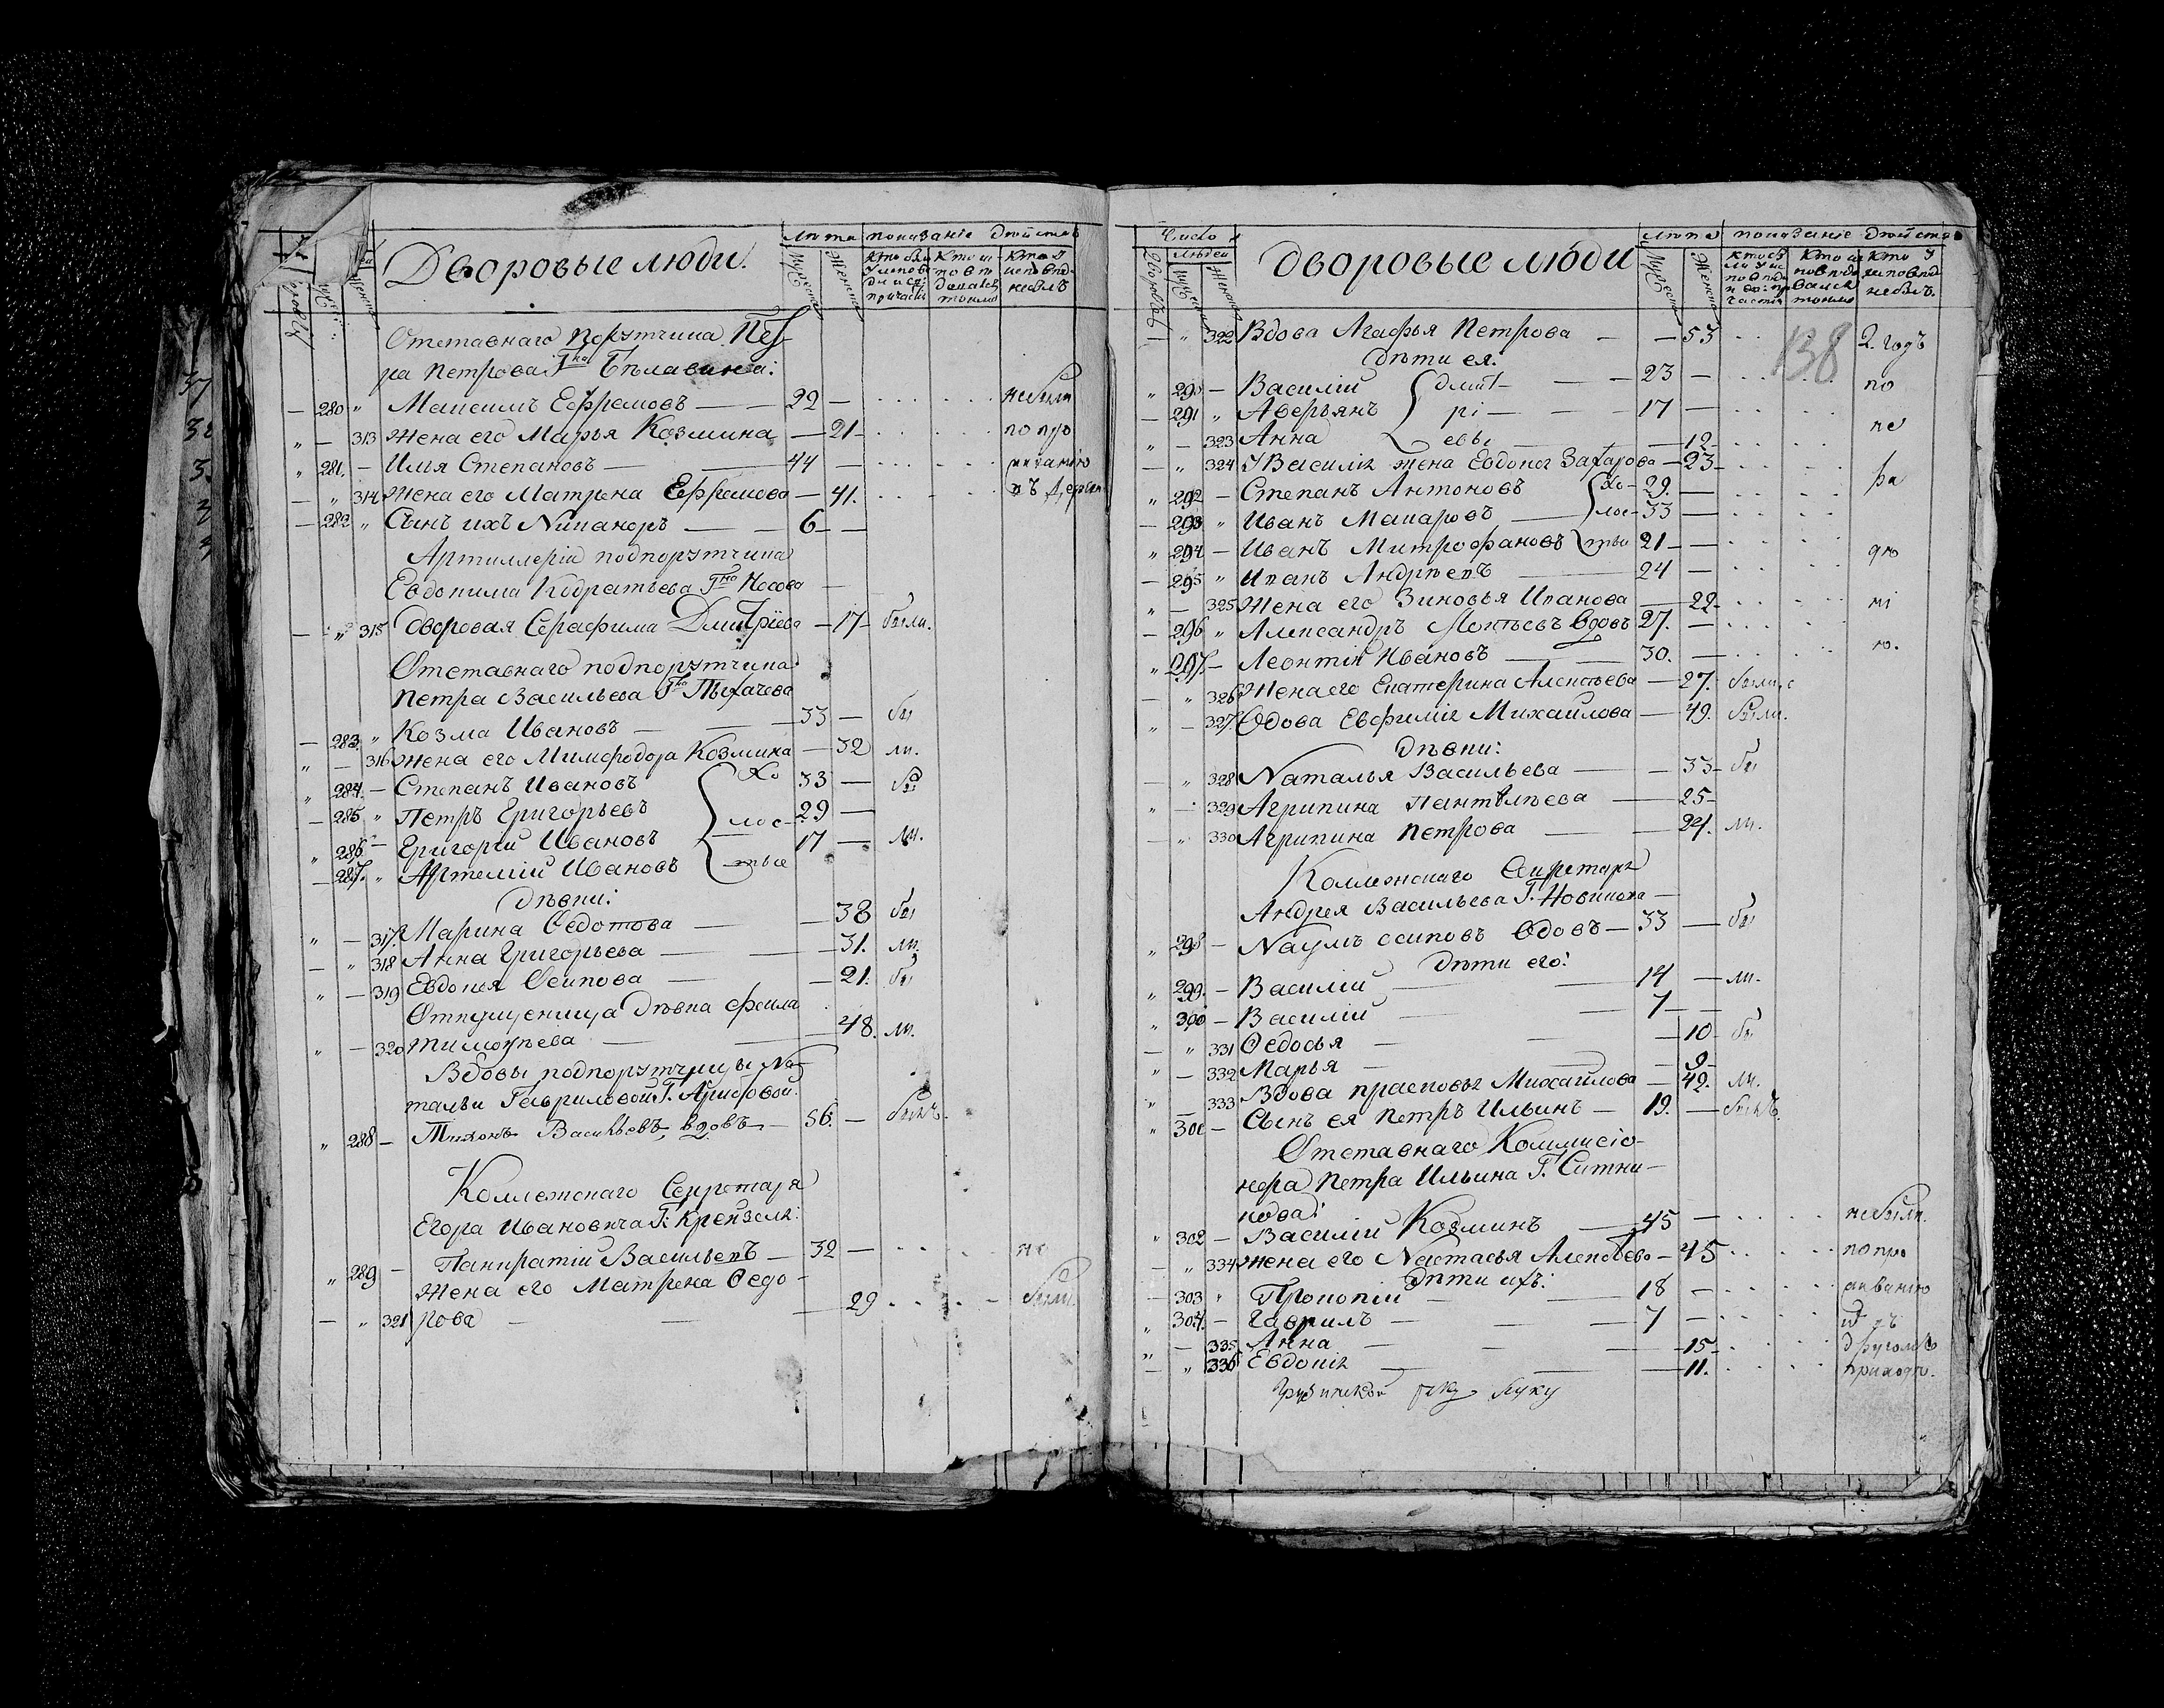 Дворовые люди.
Лѣта показанiе дѣйства
Мужеска
Женска
Отставнаго Порутчика Пет-
ра Петрова Гна Бѣлавина:
280 " Максимъ Ефремовъ — 22 — небыли
" — 313 Жена его Марья Козмина — 21 по про
" 281. — Илья Степановъ — 44 —
— " 314 Жена его Матрена Ефремова — 41.
— 282 " Сынъ ихъ Никаноръ — 6 —
Артиллерiи подпорутчика
Евдокима Кодратьева Гна Носова —
— " 315 Дворовая Серафима Дмитрiева — 17 были.
Отставнаго подпорутчика
Петра Васильева Гна Пыхачева
— 283. " Козма Ивановъ — 33 — бы
" — 316 Жена его Минодора Козмина — 32 ли.
" 284. — Степанъ Ивановъ Хо 33 — бы
— 285 " Петръ Григорьевъ лос- 29 —
" 286. — Григорiй Ивановъ 17 — ли.
— 287. " Артемiй Ивановъ тые
Дѣвки:
" — 317. Марина Федотова — 38 бы
— " 318 Анна Григорьева — 31. ли.
" — 319 Евдокiя Осипова — 21. бы
Отпущеница Дѣвка Фекла
" — 320 Тимофѣева — 48. ли.
Вдовы подпорутчицы На-
тальи Гавриловой Г. Арисовой.
" 288 — Тихонъ Васильевъ вдовъ — 56. — былъ.
Коллежскаго Секретаря
Егора Ивановича Г: Крейзеля:
" 289 — Панкратiй Васильевъ — 32 — не
Жена его Матрена Федо-
— " 321 рова — 29 были
Число
Людей
Дворовъ
Дворовые люди
Лѣта показанiе дѣйства
Мужеска
Женска
138
— " 322 Вдова Агафья Петрова — 53 2. годъ
Дѣти ея:
" 290 — Василiй Дмит- — 23 — по
— 291 " Аверьянъ рi — 17 — не
" — 323 Анна евы — 12
— " 324 У Василiя жена Евдокiя Захарова — 23 ра
" 292 — Степанъ Антоновъ Хо- 29. —
— 293 " Иванъ Макаровъ — лос- 33 —
" 294 — Иванъ Митрофановъ тые 21 —
— 295 " Иванъ Андрѣевъ — 24 —
" — 325 Жена его Зиновья Иванова — 22 нi
— 296 " Александръ Мокѣевъ вдовъ 27. — ю.
" 297. — Леонтiй Ивановъ — 30. —
— " 326 Жена его Екатерина Алексѣева — 27. были
" — 327. Вдова Евфимiя Михайлова — 49. были.
Дѣвки:
— " 328 Наталья Васильева — 33 бы
" — 329 Агрипина Пантѣлѣева — 25
— " 330 Агрипина Петрова — 24. ли.
Коллежскаго Секретаря
Андрея Васильева Г. Новикова —
" 298 — Наумъ Осиповъ вдовъ — 33 — бы
Дѣти его:
" 299. — Василiй — 14 — ли.
" 300 — Василiй — 7 —
— " 331 Федосья — 10 бы
" — 332 Марья — 9
" — 333 Вдова Прасковья Михайлова — 42. ли.
" 301 — Сынъ ея Петръ Ильинъ — 19. — былъ.
Отставнаго Коммисiо-
нера Петра Ильина Г. Ситни-
кова:
" 302 — Василiй Козминъ — 45 — небыли.
— " 334 Жена его Настасья Алексѣева — 45 по про
Дѣти ихъ:
— 303 " Прокопiй — 18 —
" 304. — Гаврилъ — 7 —
" — 335 Анна — 15 другомъ
— " 336 Евдокiя — 11. приходѣ.